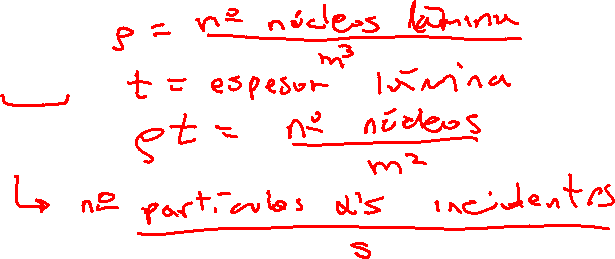 ρ = nº núcleos lámina / m³
t = espesor lámina
ρt = nº núcleos / m²
↳ nº partículas α's incidentes / s